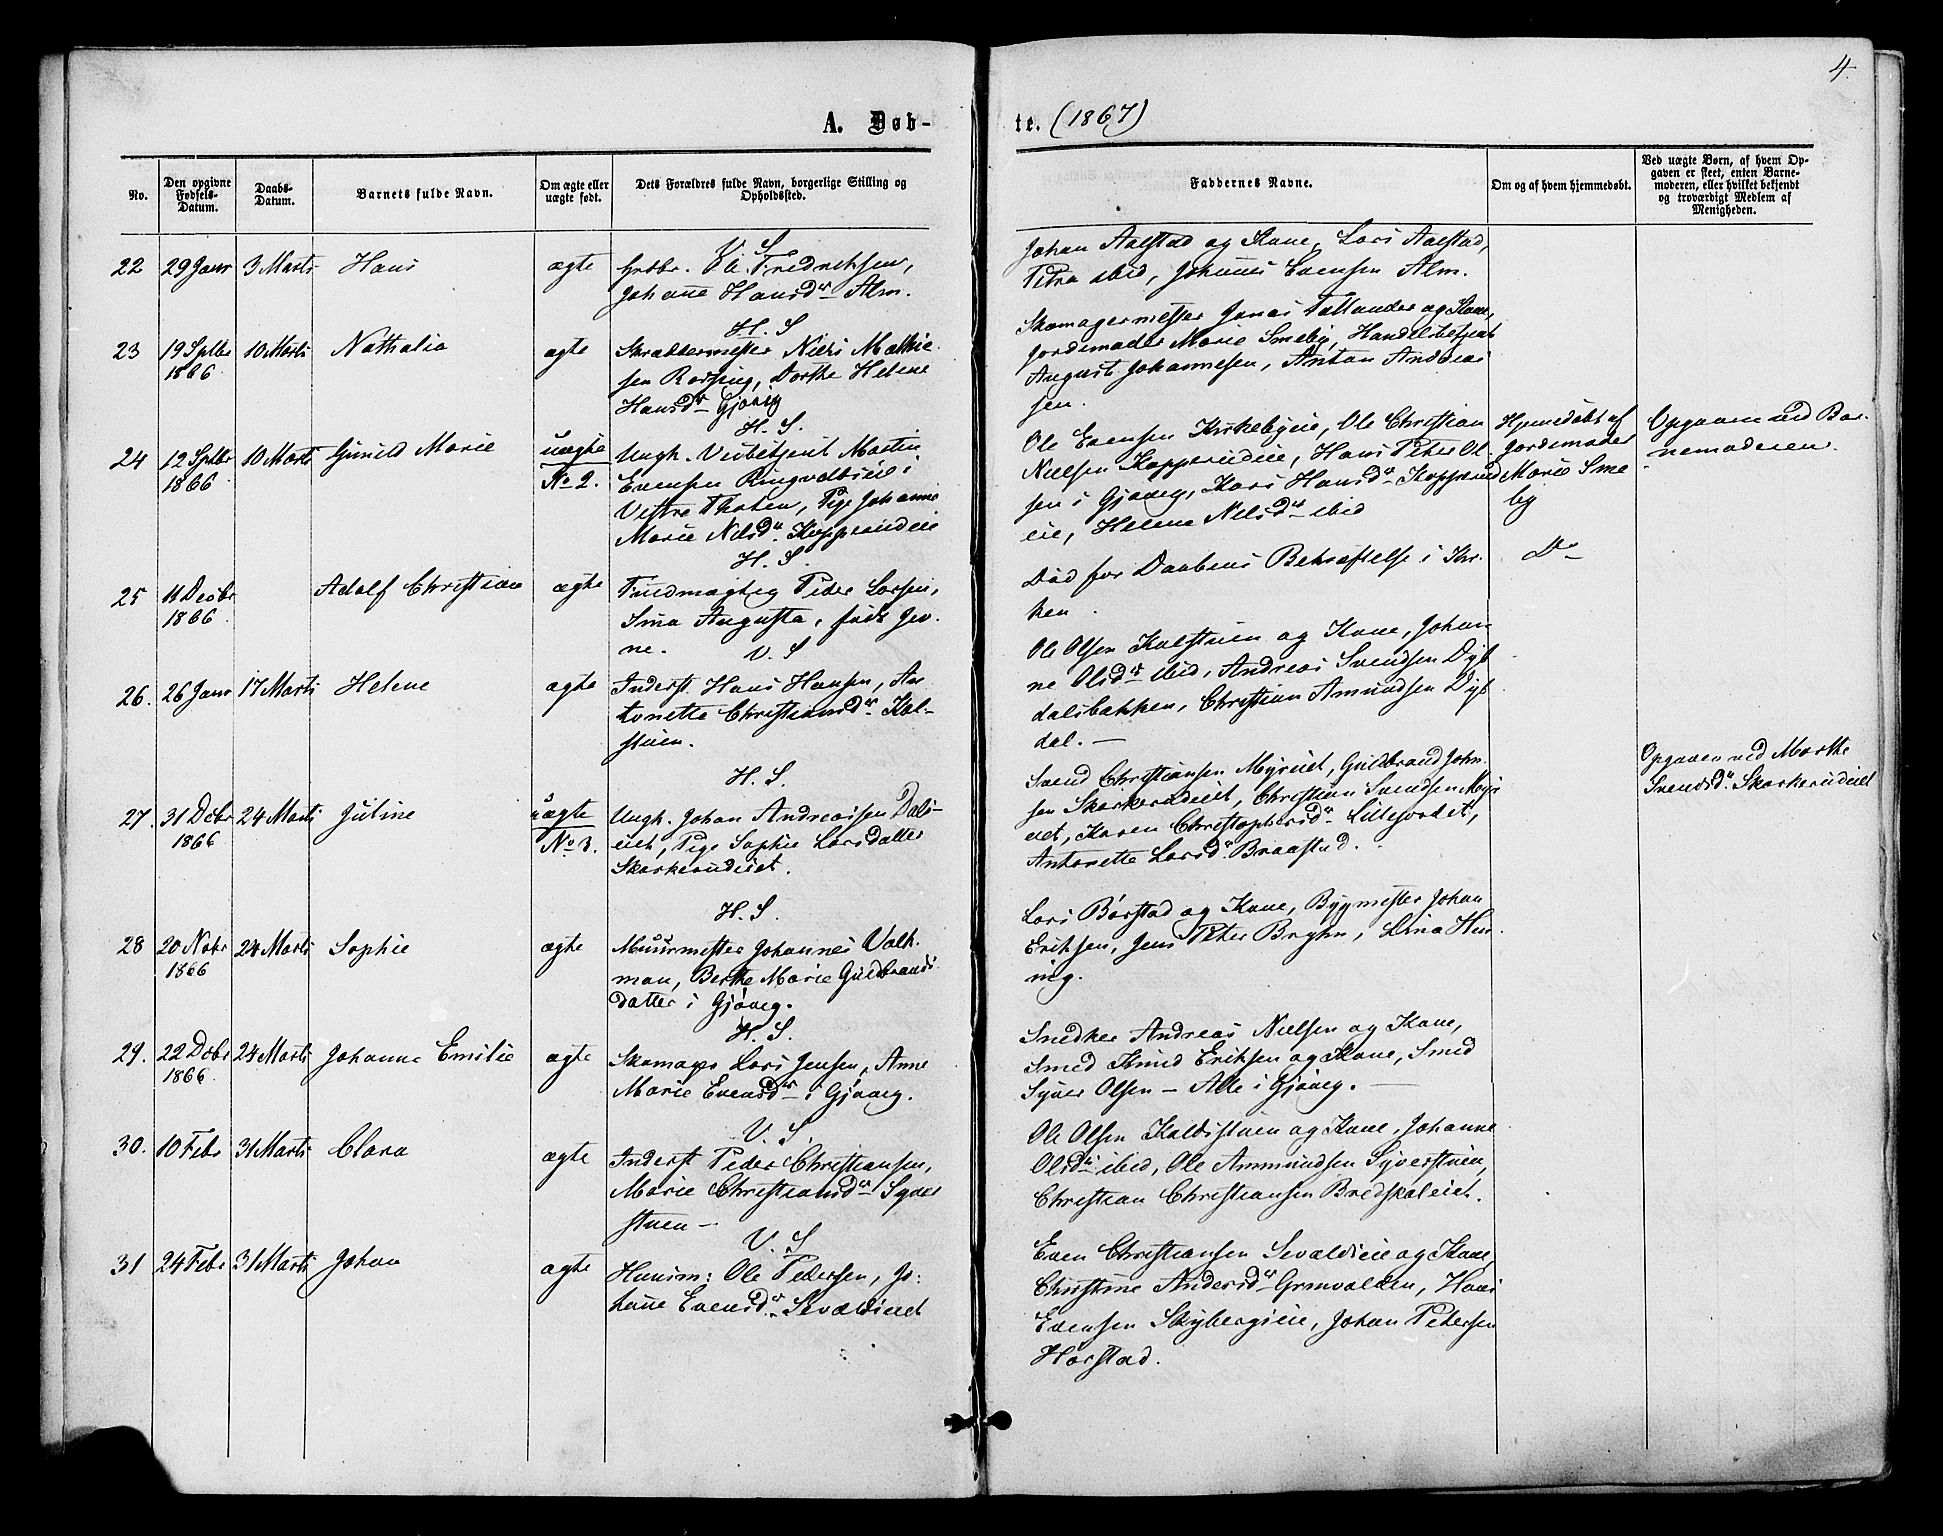 4.
A. Døb-
te. (1867)
No.
Den opgivne
Fødsels-
Datum.
Daabs-
Datum.
Barnets fulde Navn.
Om ægte eller
uægte født.
Dets Forældres fulde Navn, borgerlige Stilling og
Opholdssted.
Faddernes Navne.
Om og af hvem hjemmedøbt.
Ved uægte Børn, af hvem Op-
gaven er skeet, enten Barne-
moderen, eller hvilket bekjendt
og troværdigt Medlem af
Menigheden.
22
29 Janr
3 Marts
Hans
ægte
V. S
Grdbr. Fredriksen,
Johanne Hansdr Alm.
Johan Aalstad og Kone, Lars Aalstad,
Petra ibid, Johannes Evensen Alm.
23
19 Sptbr
1866
10 Marts
Nathalia
ægte
H. S
Skræddermester Niels Mathie
sen Røising, Dorthe Helene
Hansdr Gjøvig
Skomagermester Jonas Tallander og Kone,
Jordemoder Marie Smeby, Handelsbetjent
August Johannesen, Anton Andreas
sen.
24
12 Sptbr
1866
10 Marts
Gunild Marie
uægte
No 2.
H. S.
Ungk. Veibetjent Martin
Evensen Ringvoldseie i
Vestre Thoten, Pige Johanne
Marie Nilsdr Kopperudeie
Ole Evensen Kirkebyeie, Ole Christian
Nielsen Kopperudeie, Hans Peter Ol.
sen i Gjøveg, Kari Hansdr Kopperud
eie, Helene Nilsdr ibid
Hjemedøbt af
Jordemoder
Marie Sme
by
Opgaven ved Bar-
nemoderen.
25
11 Decbr
1866
Adolf Christian
ægte
H. S.
Fuldmægtig Peder Larsen,
Sina Augusta, født Gev.
ne.
Død før Daabens Bekræftelse i Kir.
ken.
Do
26.
26 Janr
17 Marts
Helene
ægte
V. S
Inderst Hans Hansen, An
tonette Christiansdr Kal-
stuen.
Ole Olsen Kalstuen og Kone, Johan
ne Olsdr ibid, Andreas Svendsen Dyb
dalsbakken, Christian Amundsen Dyb
dal. —
27.
31 Dcbr
1866
24 Marts
Juline
uægte
No 3.
H. S.
Ungk. Johan Andreassen Dals-
eiet, Pige Sophie Larsdatter
Skarkerudeiet.
Svend Christiansen Myreiet, Guldbrand John.
sen Skarkerudeiet, Christian Svendsen Myr
eiet, Karen Christophersdr Lillejordet,
Antonette Larsdr Braastad.
Opgaven ved Marthe
Svendsdr Skarkerudeiet
28
20 Nobr
1866
24 Marts
Sophie
ægte
H. S.
Muurmester Johannes Valk.
man, Berthe Marie Guldbrands
datter i Gjøveg.
Lars Børstad og Kone, Bygmester Johan
Eriksen, Jens Peter Bryhn, Lina Hen
nig.
29.
22 Dcbr
1866
24 Marts
Johanne Emilie
ægte
H. S.
Skomagr Lars Jensen, Anne
Marie Evensdr i Gjøveg.
Snedker Andreas Nielsen og Kone,
Smed Knud Eriksen og Kone, Smed
Syver Olsen — Alle i Gjøveg. —
30.
10 Febr
31 Marts
Clara
ægte
V. S.
Inderst Peder Christiansen,
Marie Christiansdr Syver
stuen —
Ole Olsen Kaldsstuen og Kone, Johanne
Olsdr ibid, Ole Ammundsen Syverstuen,
Christian Christiansen Bredskaleiet.
31
24 Febr
31 Marts
Johan
ægte
V. S
Huusm: Ole Pedersen, Jo:
hanne Evensdr Sevaldseiet
Even Christiansen Sevaldseie og Kone,
Christine Andersdr Grinvolden, Hans
Evensen Skybergseie, Johan Petersen
Horstad.